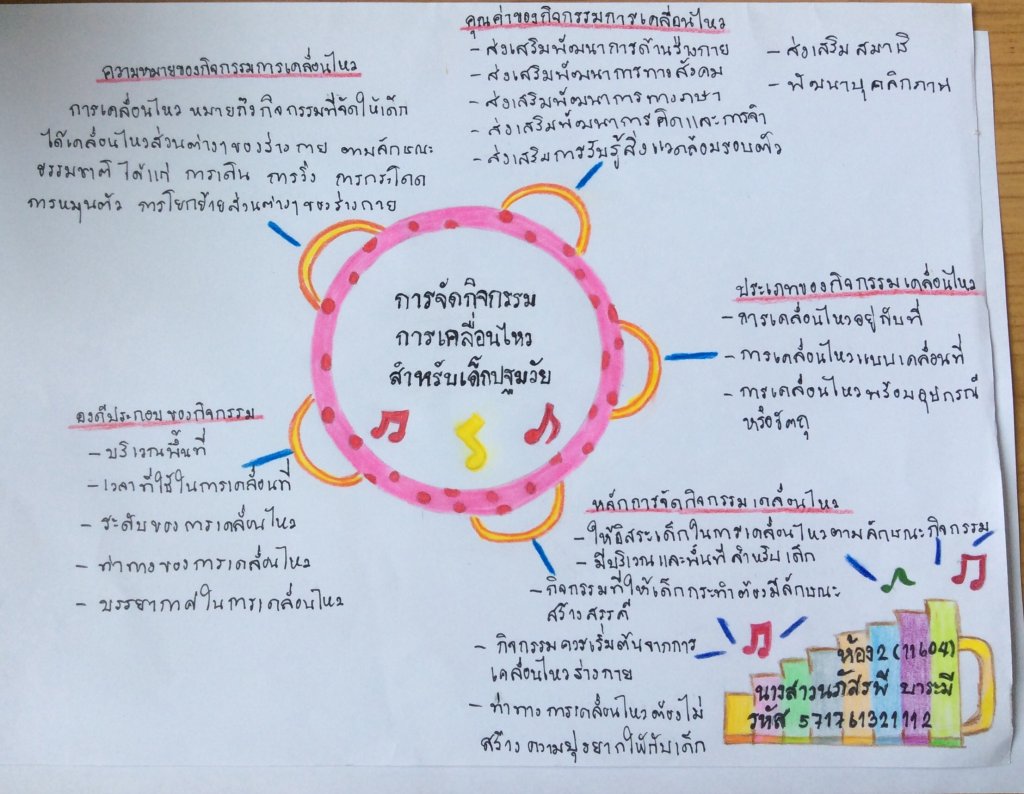 ความหมายของกิจกรรมการเคลื่อนไหว
การเคลื่อนไหว หมายถึง กิจกรรมที่จัดให้เด็ก
ได้เคลื่อนไหวส่วนต่างๆของร่างกาย ตามลักษณะ
ธรรมชาติ ได้แก่ การเดิน การวิ่ง การกระโดด
การหมุนตัว การโยกย้ายส่วนต่างๆของร่างกาย
คุณค่าของกิจกรรมการเคลื่อนไหว
- ส่งเสริมพัฒนาการด้านร่างกาย
- ส่งเสริมพัฒนาการทางสังคม
- ส่งเสริมพัฒนาการทางภาษา
- ส่งเสริมพัฒนาการคิดและการจำ
- ส่งเสริมการรับรู้สิ่งแวดล้อมรอบตัว
- ส่งเสริมสมาธิ
- พัฒนาบุคลิกภาพ
การจัดกิจกรรม
การเคลื่อนไหว
สำหรับเด็กปฐมวัย
ประเภทของกิจกรรมเคลื่อนไหว
- การเคลื่อนไหวอยู่กับที่
- การเคลื่อนไหวแบบเคลื่อนที่
- การเคลื่อนไหวพร้อมอุปกรณ์
หรือวัตถุ
องค์ประกอบของกิจกรรม
- บริเวณพื้นที่
- เวลาที่ใช้ในการเคลื่อนที่
- ระดับของการเคลื่อนไหว
- ท่าทางของการเคลื่อนไหว
- บรรยากาศในการเคลื่อนไหว
หลักการจัดกิจกรรมเคลื่อนไหว
- ให้อิสระเด็กในการเคลื่อนไหวตามลักษณะกิจกรรม
- มีบริเวณและพื้นที่สำหรับเด็ก
- กิจกรรมที่ให้เด็กกระทำต้องมีลักษณะ
สร้างสรรค์
- กิจกรรมควรเริ่มต้นจากการ
เคลื่อนไหวร่างกาย
- ท่าทางการเคลื่อนไหวต้องไม่
สร้างความยุ่งยากให้กับเด็ก
ห้อง2 (11604)
นางสาวนภัสรพี บาระมี
รหัส 571761321112